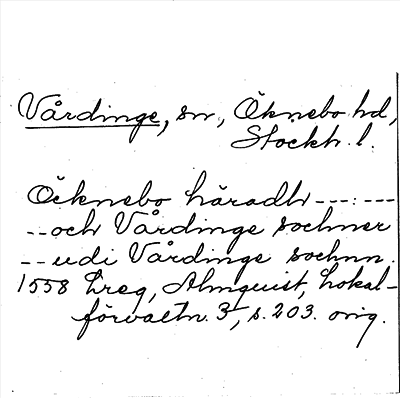 Vårdinge, sn, Öknebo hd,
Stockh. l.
Öcknebo häradh ---:---
--och Vårdinge sochner
--udi Vårdinge sochnn.
1558 Lreg, Almquist, Lokal-
förvaltn. 3, s. 203. orig.